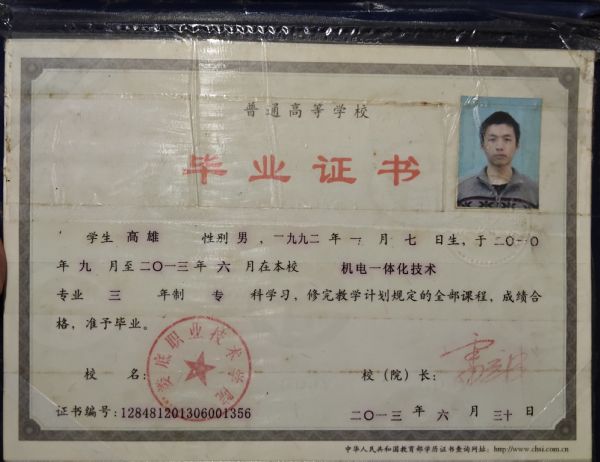 普通高等学校
毕业证书
学生 高雄 性别 男，一九九二年 一 月 七 日生，于二〇一〇
年 九 月至二〇一三年 六 月在本校 机电一体化技术
专业 三 年制 专 科学习，修完教学计划规定的全部课程，成绩合
格，准予毕业。
娄底职业技术学院
校 名： 校（院）长：
证书编号：128481201306001356 二〇一三 年 六 月 三十 日
中华人民共和国教育部学历证书查询网址：http://www.chsi.com.cn